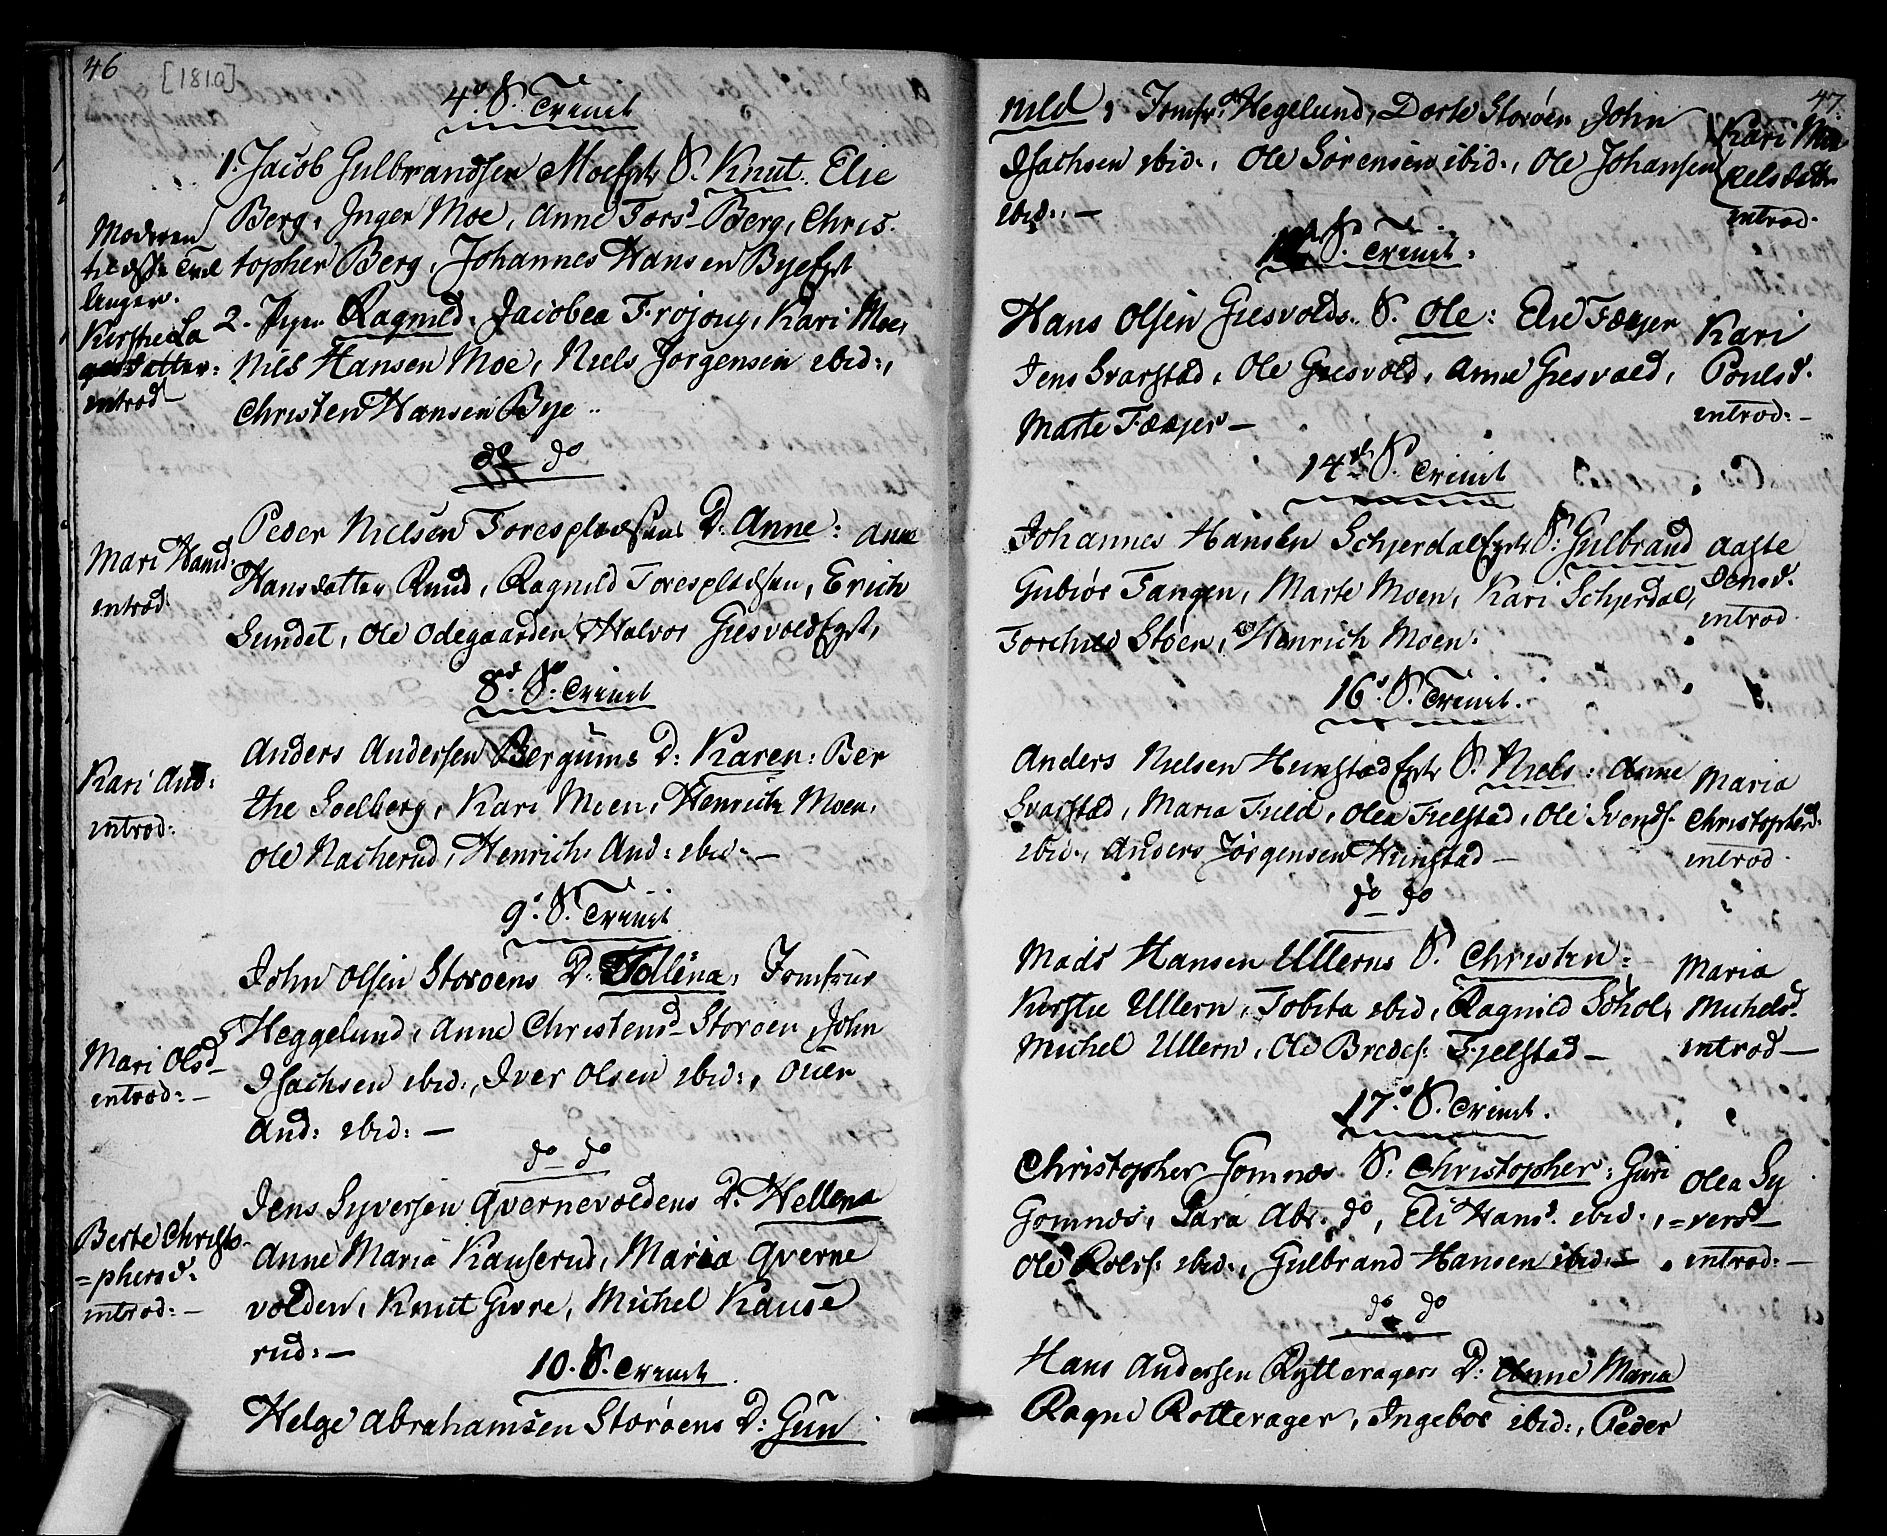 46
[1810]
4de S. Trinit
1. Jacob Gulbrandsen Moe Egte S. Knut. Elie
Berg, Inger Moe, Anne Torsd Berg, Chris
topher Berg, Johannes Hansen Bye Egt
2. Ragnild. Jacobea Kari Moe,
Nils Hansen Moe, Niels Jørgensen ibid:,
Christen Hansen Bye ..
Moderen
til disse
linger.
Kirstie La
datter:
introd
do do
Peder Nielsen Forespladsens D: Anne: Anne
Hansdatter Rund, Ragnild Forespladsen, Erich
Sundet, Ole Odegaarden, Halvor Giesvold Egt,
Mari Hansd.
introd.
8de S. Trinit
Anders Andersen Bergums D: Karen: Ber
the Soelberg, Kari Moen, Henrich Moen,
Ole Nacherud, Henrich And: ibid: —
Kari And:
introd:
9de S. Trinit
John Olsen Storøens D. Tollena, Jomfrue
Heggelund, Anne Christensd Storøen, John
Isachsen ibid:, Iver Olsen ibid:, Ouer
And: ibid: —
Mari Olsd
introd: —
do do
Jens Syversen Qvernevoldens D. Hellena
Anne Maria Kauserud, Maria Qverne
volden, Knut Michel Kause
rud: —
Berte Christo
=phersd:
introd: —
10. S. Trinit
Helge Abrahamsen Storøens D: Gun
47.
nild; Jomfr. Hegelund, Dorte Storøen, John
Isachsen ibid:, Ole Sørensen ibid:, Ole Johansen
ibid: —
Kari
introd.
S. Trinit.
Hans Olsen Giesvolds S. Ole: Elie
Jens Svarstad, Ole Giesvold, Anne Giesvold,
Marte —
Kari
Poulsd.
introd: —
14de S. Trinit
Johannes Hansen Schjerdal Egte S: Gulbrand
Gubiør Tangen, Marte Moen, Kari Schjerdal,
Støen, Henrich Moen.
Aaste
Jensd.
introd.
16de S. Trinit.
Anders Nielsen Hunstad Egte S. Niels: Anne
Svarstad, Maria Olea Fielstad, Ole Svends.
ibid:, Anders Jørgensen Hunstad —
Maria
Christophersd.
introd.
do do
Mads Hansen Ullerns S. Christen:
Kirstie Ullern, Tobita ibid, Ragnild Søhol,
Michel Ullern, Ole Bredes: Fjelstad —
Maria
Michelsd.
introd —
17de S. Trinit.
Christopher Gomnes S. Christopher: Guri
Gomnes, Sara Abr. do, Eli Hansd. ibid.,
Ole Rolfs: ibid:, Gulbrand Hansen ibid: —
Olea Sy
=versd
introd: —
do do
Hans Andersen Rytteragers D: Anne Maria
Ragne Rotterager, Ingebor ibid:, Peder